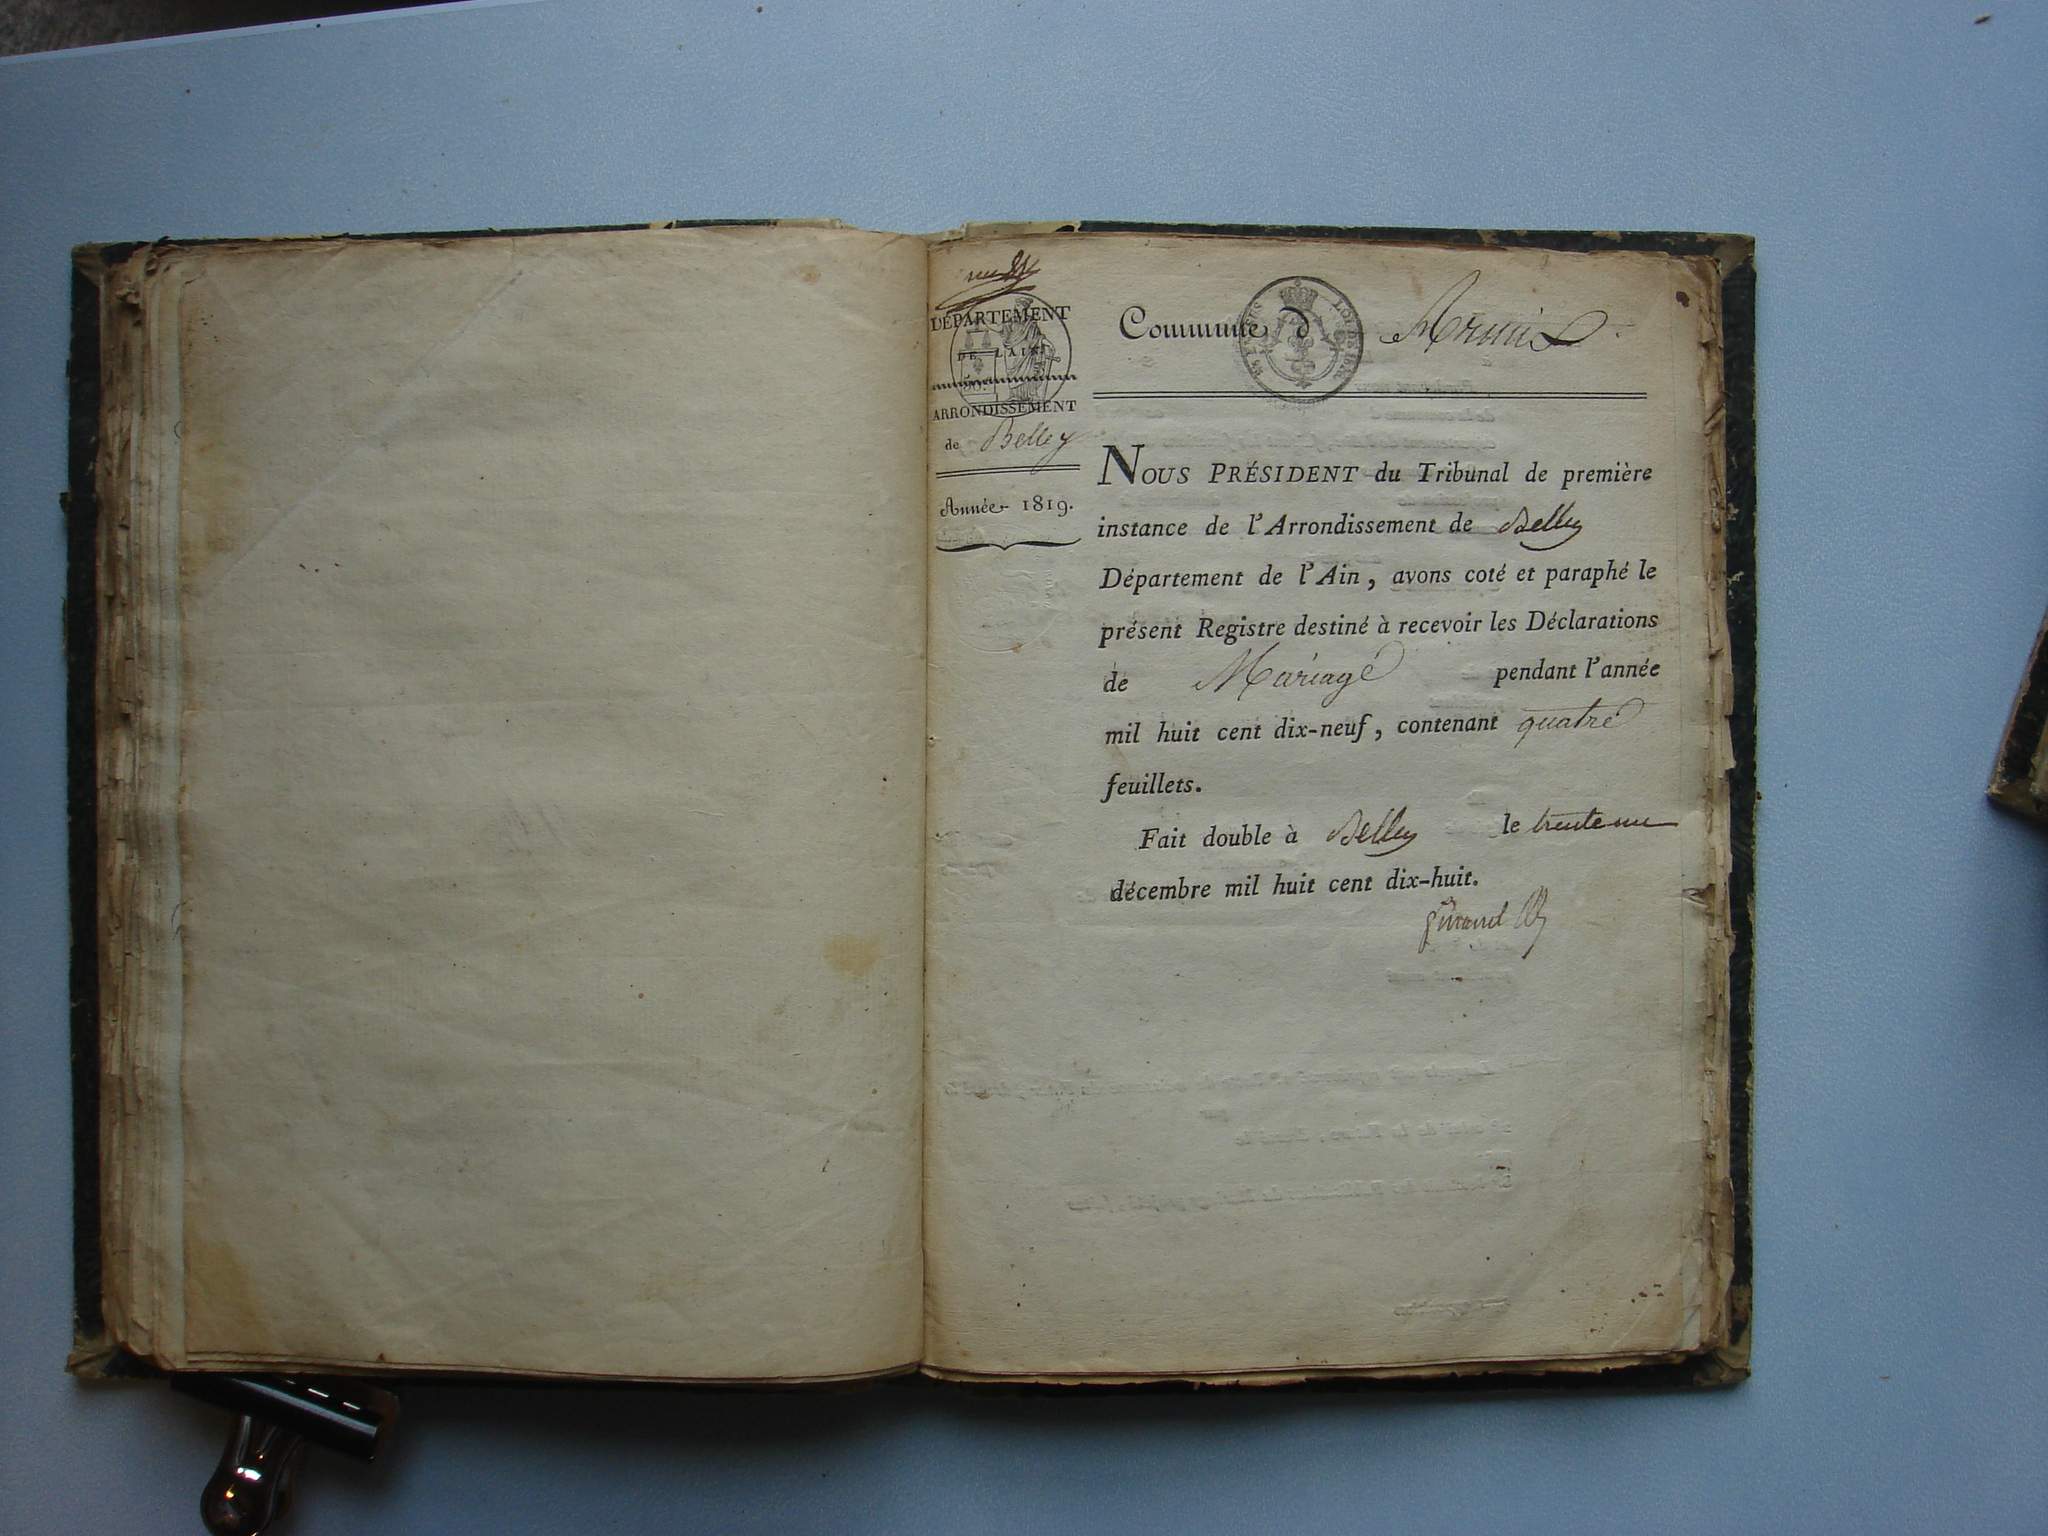 DÉPARTEMENT
DE L'AIN
ARRONDISSEMENT
de Belley
Année 1819.
Commune d Armix
LOI DE 1816.
NOUS PRÉSIDENT du Tribunal de première
instance de l'Arrondissement de Belley
Département de l'Ain, avons coté et paraphé le
présent Registre destiné à recevoir les Déclarations
de Mariage pendant l'année
mil huit cent dix-neuf, contenant quatre
feuillets.
Fait double à Belley le trente un
décembre mil huit cent dix-huit.